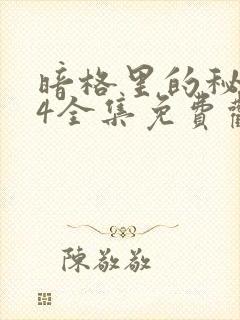 暗格里的秘
4全集免费
陈敬敬